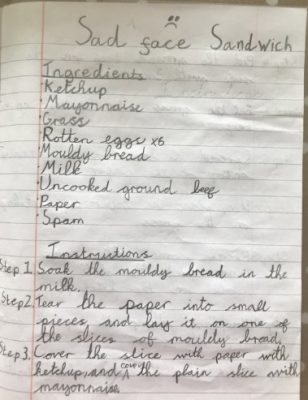 Sad face Sandwich
Ingredients
· Ketchup
· Mayonnaise
· Grass
· Rotten eggs x6
· Mouldy bread
· Milk
· Uncooked ground beef
· Paper
· Spam
Instructions
Step 1. Soak the mouldy bread in the
milk.
Step 2. Tear the paper into small
pieces and lay it on one of
the slices of mouldy bread.
Step 3. Cover the slice with paper with
ketchup, and cover the plain slice with
mayonnaise.